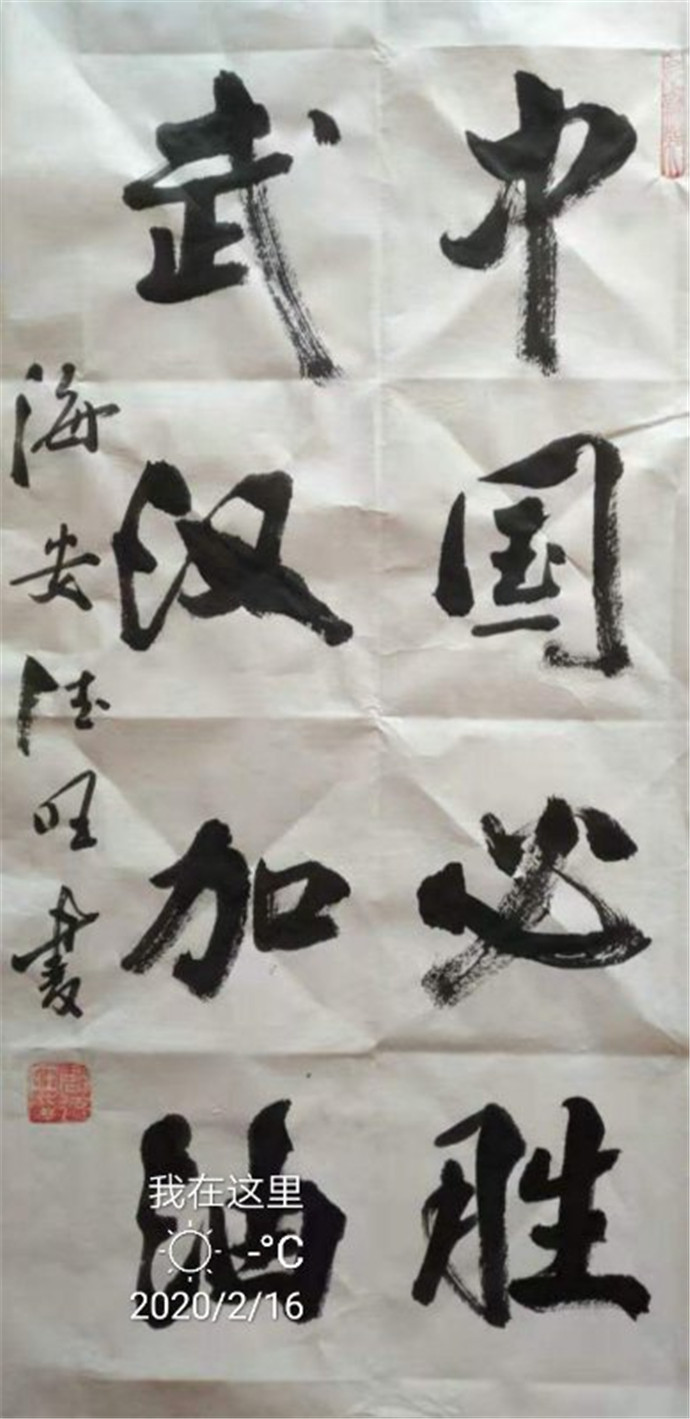 中国必胜
武汉加油
海安德旺書
我在这里
-°C
2020/2/16